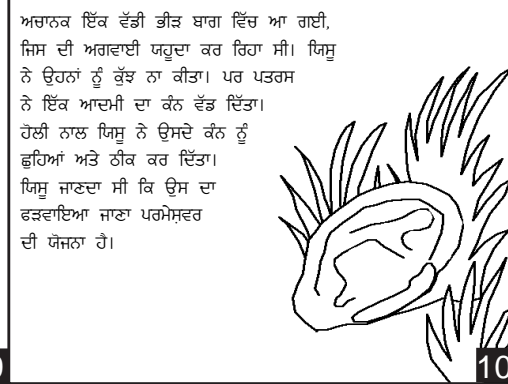 ਅਚਾਨਕ ਇੱਕ ਵੱਡੀ ਭੀੜ ਬਾਗ ਵਿੱਚ ਆ ਗਈ,
ਜਿਸ ਦੀ ਅਗਵਾਈ ਯਹੂਦਾ ਕਰ ਰਿਹਾ ਸੀ। ਯਿਸੂ
ਨੇ ਉਹਨਾਂ ਨੂੰ ਕੁੱਝ ਨਾ ਕੀਤਾ। ਪਰ ਪਤਰਸ
ਨੇ ਇੱਕ ਆਦਮੀ ਦਾ ਕੰਨ ਵੱਡ ਦਿੱਤਾ।
ਹੋਲੀ ਨਾਲ ਯਿਸੂ ਨੇ ਉਸਦੇ ਕੰਨ ਨੂੰ
ਛੁਹਿਆਂ ਅਤੇ ਠੀਕ ਕਰ ਦਿੱਤਾ।
ਯਿਸੂ ਜਾਣਦਾ ਸੀ ਕਿ ਉਸ ਦਾ
ਫੜਵਾਇਆ ਜਾਣਾ ਪਰਮੇਸ਼ਵਰ
ਦੀ ਯੋਜਨਾ ਹੈ।
10